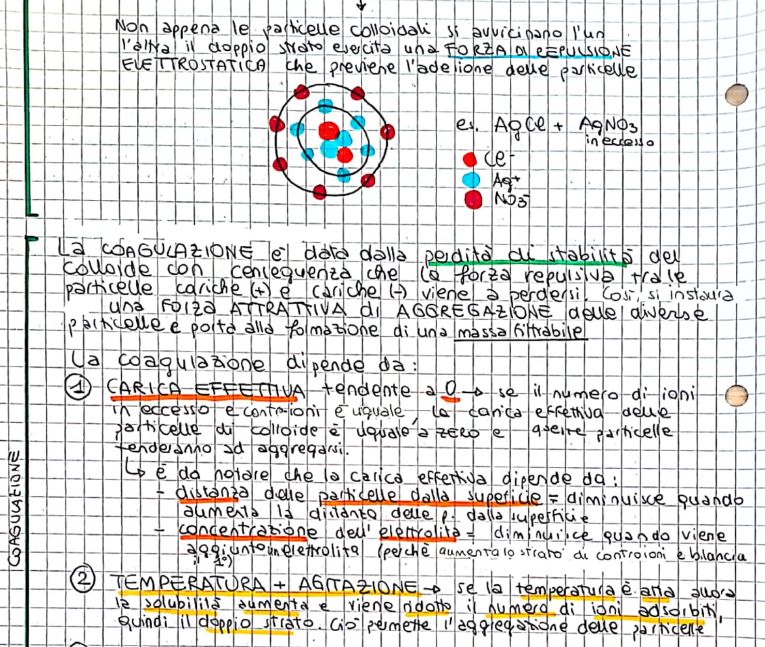 Non appena le particelle colloidali si avvicinano l'un
l'altra il doppio strato esercita una FORZA DI REPULSIONE
ELETTROSTATICA che previene l'adesione delle particelle
es. AgCl + AgNO3
in eccesso
Cl-
Ag+
NO3-
La COAGULAZIONE e' data dalla perdità di stabilità del
colloide con conseguenza che la forza repulsiva tra le
particelle cariche (+) e cariche (-) viene a perdersi. Così, si instaura
una FORZA ATTRATTIVA di AGGREGAZIONE delle diverse
particelle e porta alla formazione di una massa filtrabile
La coagulazione dipende da:
1 CARICA EFFETTIVA tendente a 0 → se il numero di ioni
in eccesso e controioni è uguale, la carica effettiva delle
particelle di colloide è uguale a zero e queste particelle
tenderanno ad aggregarsi.
↳ è da notare che la carica effettiva dipende da:
- distanza delle particelle dalla superficie = diminuisce quando
aumenta la distanza delle p. dalla superficie
- concentrazione dell'elettrolita = diminuisce quando viene
aggiunto un elettrolita (perchè aumenta lo strato di controioni e bilancia
COAGULAZIONE
2 TEMPERATURA + AGITAZIONE → se la temperatura è alta allora
la solubilità aumenta e viene ridotto il numero di ioni adsorbiti,
quindi il doppio strato. Ciò permette l'aggregazione delle particelle